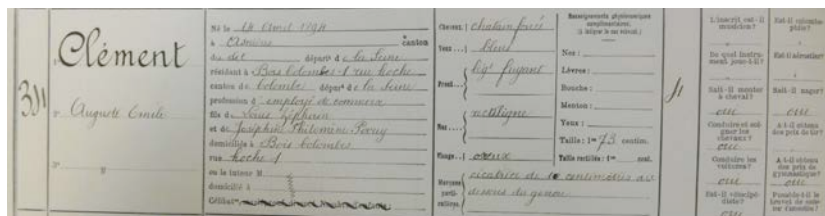 Clément
1° Auguste Emile
2°
3° "
Né le 14 Avril 1894
à Asnières canton
du dit départ d e la Seine
résidant à Bois Colombes 1 rue hoche
canton de Colombes départ d e la Seine
profession d'employé de commerce
fils de Louis Zéphirin
et de Joséphine Philomène
domiciliés à Bois Colombes
rue hoche 1
ou le tuteur M
domicilié à
Célibat
Cheveux : chatain foncé
Yeux : bleus
Front : fuyant
Nez : rectiligne
Visage : osseux
Marques particulières : cicatrice de 10 centimètres au
dessous du genou
Renseignements physionomiques
complémentaires.
Nez :
Lèvres :
Bouche :
Menton :
Yeux :
Taille : 1m 73 centim.
Taille rectifiée : 1m cent.
L'inscrit est-il
musicien ?
"
De quel instru-
ment joue-t-il ?
"
Sait-il monter
à cheval ?
oui
Conduire et soi-
gner les
chevaux ?
oui
Conduire les
voitures ?
oui
Est-il vélocipé-
diste ?
oui
Est-il colombo-
phile ?
"
Est-il aérostier ?
"
Sait-il nager ?
oui
A-t-il obtenu
des prix de tir ?
oui
A-t-il obtenu
des prix de
gymnastique ?
oui